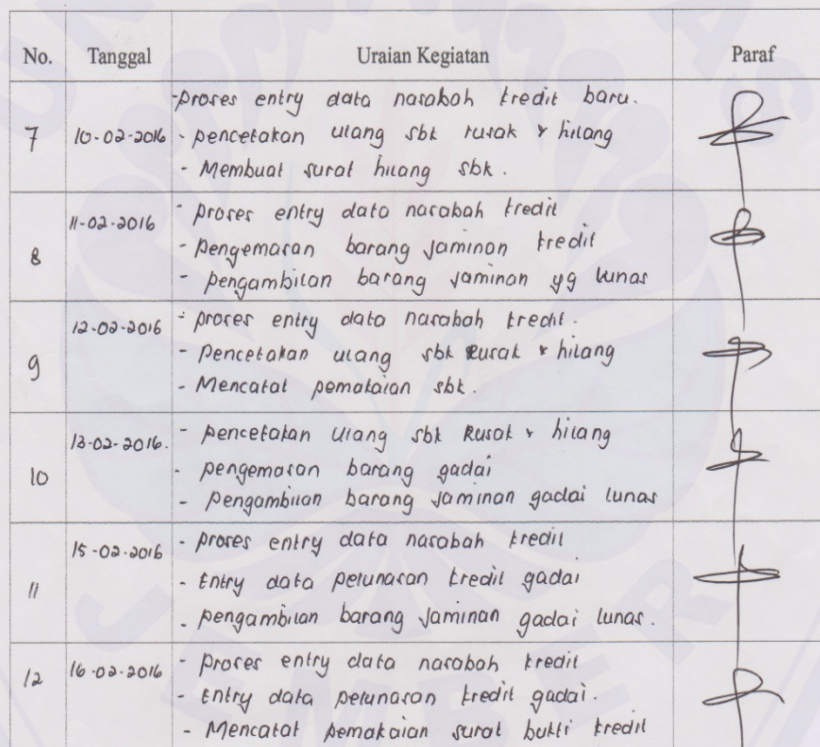 No. Tanggal Uraian Kegiatan Paraf
- proses entry data nasabah kredit baru.
7 10-02-2016 - pencetakan ulang sbk rusak & hilang
- Membuat surat hilang sbk.
11-02-2016 - proses entry data nasabah kredit
8 - pengemasan barang jaminan kredit
- pengambilan barang jaminan yg lunas
12-02-2016 - proses entry data nasabah kredit.
9 - Pencetakan ulang sbk Rusak & hilang
- Mencatat pemakaian sbk.
13-02-2016. - pencetakan ulang sbk Rusak & hilang
10 - pengemasan barang gadai
- Pengambilan barang jaminan gadai lunas
15-02-2016 - proses entry data nasabah kredit
11 - Entry data pelunasan kredit gadai
- pengambilan barang jaminan gadai lunas.
12 16-02-2016 - Proses entry data nasabah kredit
- Entry data pelunasan kredit gadai.
- Mencatat pemakaian surat bukti kredit
JEMBER